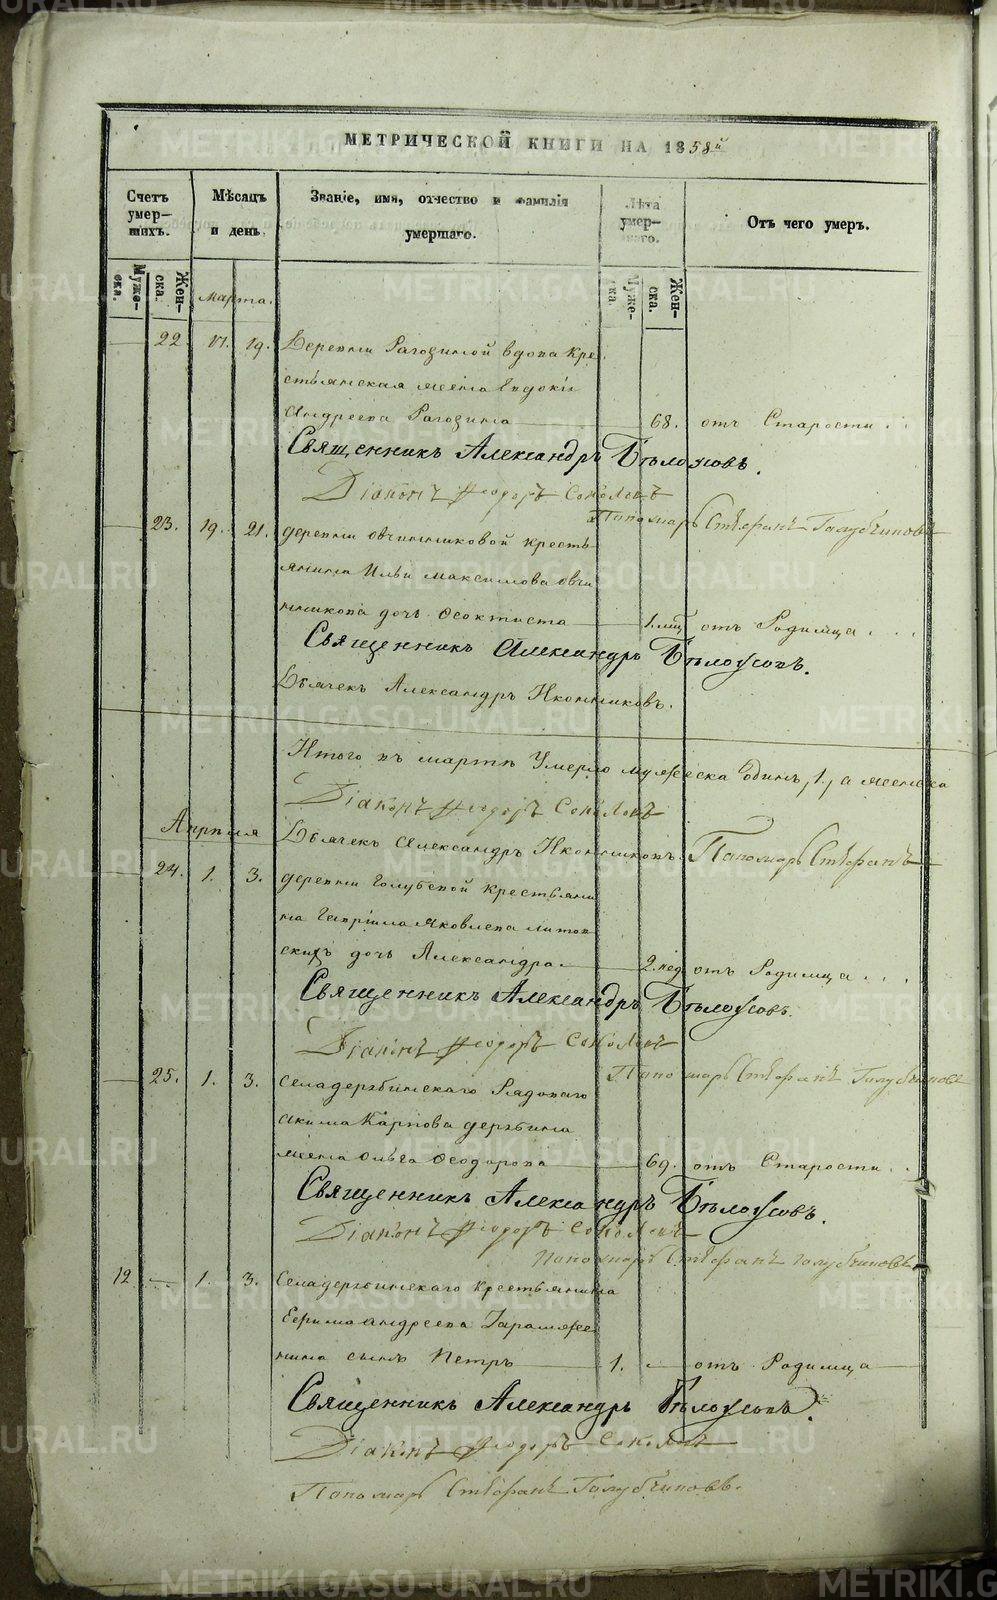 МЕТРИЧЕСКОЙ КНИГИ НА 1858й
Счетъ умер— шихъ.
Мѣсяцъ и день.
Званіе, имя, отчество и фамилія умершаго.
Лѣта умер— шаго.
Отъ чего умеръ.
Муже— ска.
Жен— ска.
Муже— ска.
Жен— ска.
Марта.
22. 17. 19. Деревни Рагозиной вдова кре
стьянская жена Евдокія
Андреева Рагозина 68. отъ Старости
Священникъ Александръ Бѣлоусовъ.
Діаконъ Ѳеодоръ Соколовъ
Пономарь Стефанъ Голубчиковъ
23. 19. 21. деревни Овчинниковой кресть
янина Ильи Максимова Овчи
нникова дочь Ѳеоктиста 1. мѣс. отъ Родимца
Священникъ Александръ Бѣлоусовъ.
Дьячекъ Александръ Иконниковъ.
Итого въ мартѣ Умерло мужеска одинъ, 1, а женска
Діаконъ Ѳеодоръ Соколовъ
Апрѣля
Дьячекъ Александръ Иконниковъ. Пономарь Стефанъ
24. 1. 3. деревни Голубевой крестьяни
на Гавріила Яковлева Литов
скихъ дочь Александра 2. нед. отъ Родимца
Священникъ Александръ Бѣлоусовъ.
Діаконъ Ѳеодоръ Соколовъ
Пономарь Стефанъ Голубчиковъ
25. 1. 3. Села дерябинскаго Рядоваго
Акима Карпова дерябина
жена Ольга Ѳеодорова 69. отъ Старости
Священникъ Александръ Бѣлоусовъ.
Діаконъ Ѳеодоръ Соколовъ
Пономарь Стефанъ Голубчиковъ
12 1. 3. Села дерябинскаго крестьянина
Ефима Андреева
нина сынъ Петръ 1. отъ Родимца
Священникъ Александръ Бѣлоусовъ.
Діаконъ Ѳеодоръ Соколовъ
Пономарь Стефанъ Голубчиковъ.
METRIKI.GASO-URAL.RU